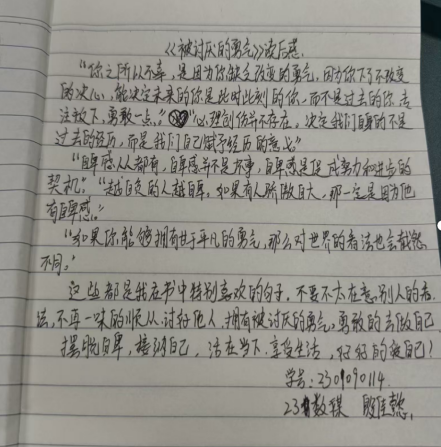 《被讨厌的勇气》读后感.
"你之所以不幸,是因为你缺乏改变的勇气,因为你下了不改变
的决心,能决定未来的你是此时此刻的你,而不是过去的你,专
注放下,勇敢一点。""心理创伤并不存在,决定我们自身的不是
过去的经历,而是我们自己赋予经历的意义"
"自卑感人人都有,自卑感并不是坏事,自卑感是促成努力和进步的
契机。""越自负的人越自卑,如果有人骄傲自大,那一定是因为他
有自卑感。"
"如果你能够拥有甘于平凡的勇气,那么对世界的看法也会截然
不同。"
这些都是我在书中特别喜欢的句子,不要不太在意别人的看
法,不再一味的顺从、讨好他人,拥有被讨厌的勇气,勇敢的去做自己,
摆脱自卑,接纳自己,活在当下,享受生活,好好的爱自己!
学号:2309090114
23数媒 殷佳懿